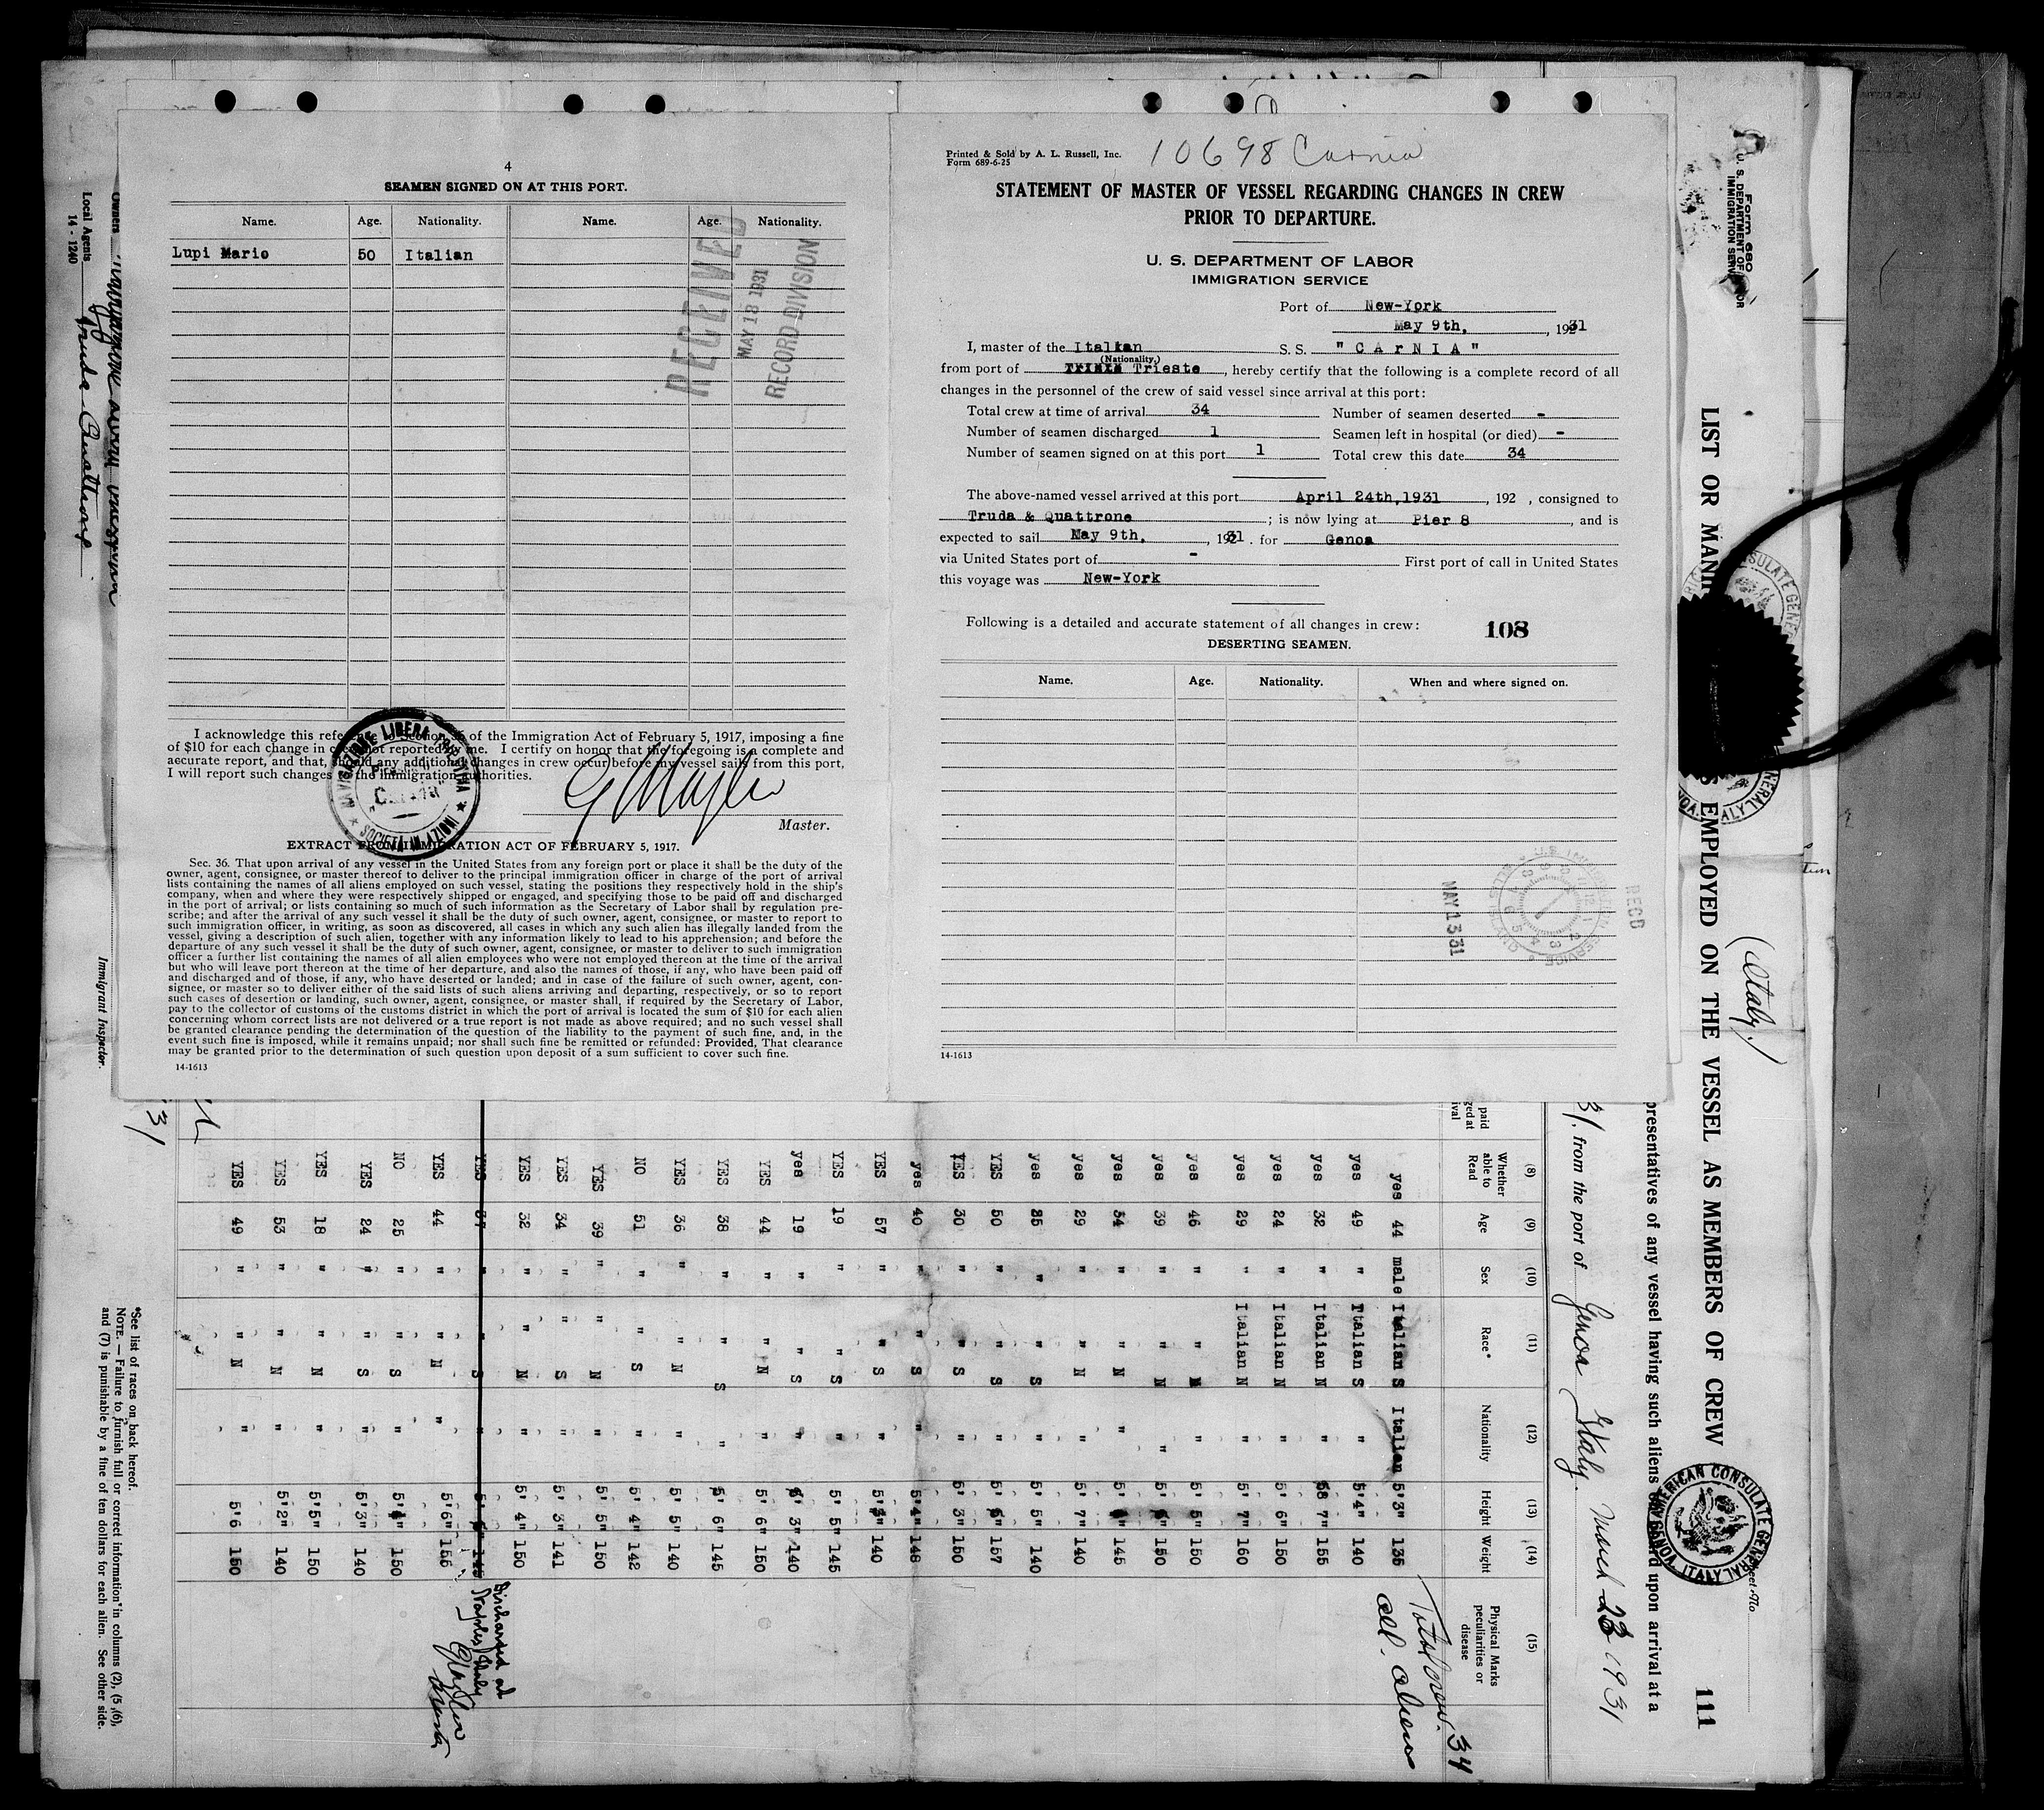 4
SEAMEN SIGNED ON AT THIS PORT.
Name. Age. Nationality. Name. Age. Nationality.
Lupi Mario 50 Italian
RECEIVED
MAY 18 1931
RECORD DIVISION
I acknowledge this reference to Section 36 of the Immigration Act of February 5, 1917, imposing a fine
of $10 for each change in crew not reported by me. I certify on honor that the foregoing is a complete and
accurate report, and that, should any additional changes in crew occur before my vessel sails from this port,
I will report such changes to the immigration authorities.
NAVIGAZIONE LIBERA TRIESTINA
SOCIETÀ IN AZIONI
Master.
EXTRACT FROM IMMIGRATION ACT OF FEBRUARY 5, 1917.
Sec. 36. That upon arrival of any vessel in the United States from any foreign port or place it shall be the duty of the
owner, agent, consignee, or master thereof to deliver to the principal immigration officer in charge of the port of arrival
lists containing the names of all aliens employed on such vessel, stating the positions they respectively hold in the ship's
company, when and where they were respectively shipped or engaged, and specifying those to be paid off and discharged
in the port of arrival; or lists containing so much of such information as the Secretary of Labor shall by regulation pre-
scribe; and after the arrival of any such vessel it shall be the duty of such owner, agent, consignee, or master to report to
such immigration officer, in writing, as soon as discovered, all cases in which any such alien has illegally landed from the
vessel, giving a description of such alien, together with any information likely to lead to his apprehension; and before the
departure of any such vessel it shall be the duty of such owner, agent, consignee, or master to deliver to such immigration
officer a further list containing the names of all alien employees who were not employed thereon at the time of the arrival
but who will leave port thereon at the time of her departure, and also the names of those, if any, who have been paid off
and discharged and of those, if any, who have deserted or landed; and in case of the failure of such owner, agent, con-
signee, or master so to deliver either of the said lists of such aliens arriving and departing, respectively, or so to report
such cases of desertion or landing, such owner, agent, consignee, or master shall, if required by the Secretary of Labor,
pay to the collector of customs of the customs district in which the port of arrival is located the sum of $10 for each alien
concerning whom correct lists are not delivered or a true report is not made as above required; and no such vessel shall
be granted clearance pending the determination of the question of the liability to the payment of such fine, and, in the
event such fine is imposed, while it remains unpaid; nor shall such fine be remitted or refunded: Provided, That clearance
may be granted prior to the determination of such question upon deposit of a sum sufficient to cover such fine.
14-1613
Printed & Sold by A. L. Russell, Inc.
Form 689-6-25
10698 Carnia
STATEMENT OF MASTER OF VESSEL REGARDING CHANGES IN CREW
PRIOR TO DEPARTURE.
U. S. DEPARTMENT OF LABOR
IMMIGRATION SERVICE
Port of New-York
May 9th, , 1931
I, master of the Italian S. S. "CArNIA"
(Nationality.)
from port of Trieste, hereby certify that the following is a complete record of all
changes in the personnel of the crew of said vessel since arrival at this port:
Total crew at time of arrival 34 Number of seamen deserted -
Number of seamen discharged 1 Seamen left in hospital (or died) -
Number of seamen signed on at this port 1 Total crew this date 34
The above-named vessel arrived at this port April 24th,1931, 192 , consigned to
Truda & Quattrone ; is now lying at Pier 8, and is
expected to sail May 9th, , 1931. for Genoa
via United States port of - First port of call in United States
this voyage was New-York
Following is a detailed and accurate statement of all changes in crew: 108
DESERTING SEAMEN.
Name. Age. Nationality. When and where signed on.
MAY 13 31
REC'D
14-1613
Form 680
U. S. DEPARTMENT OF LABOR
IMMIGRATION SERVICE
LIST OR MANI S EMPLOYED ON THE VESSEL AS MEMBERS OF CREW
111
(Italy)
presentatives of any vessel having such aliens on board upon arrival at a
31, from the port of Genoa Italy. March 23 1931
AMERICAN CONSULATE GENERAL
GENOA, ITALY
(8) Whether able to Read (9) Age (10) Sex (11) Race* (12) Nationality (13) Height (14) Weight (15) Physical Marks peculiarities or disease
Total crew. 34
all. aliens
yes 44 male Italian S Italian 5'3" 135
yes 49 " Italian S " 5'4" 140
yes 32 " Italian N " 7" 155
yes 24 " Italian N " 5' 6" 150
yes 29 " Italian N " 5' 7" 160
yes 46 " " N " 5' 5" 150
yes 39 " " N " 5' 150
yes 34 " " N " 5' 145
yes 29 " " N " 5' 7" 140
yes 25 " " S " 5' 5" 140
YES 50 " " S " 5' 157
YES 30 " " S " 5' 3" 150
yes 40 " " S " 5'4" 148
YES 57 " " S " 5' 140
YES 19 " " S " 5' 5" 145
yes 19 " " S " 3" 140
YES 44 " " N " 5' 6" 150
YES 38 " " S " 5' 6" 145
YES 36 " " N " 5' 5" 140
NO 51 " " S " 5' 4" 142
YES 39 " " N " 5' 5" 150
YES 34 " " S " 5' 3" 141
YES 32 " " N " 5' 4" 150
YES 37 " " S "
Discharged at
Naples Italy
YES 44 " " N " 5'6" 155
NO 25 " " S " 5' 150
YES 24 " " S " 5'3" 140
YES 18 " " N " 5'5" 150
YES 53 " " N " 5'2" 140
YES 49 " " N " 5'6 150
*See list of races on back hereof.
NOTE. — Failure to furnish full or correct information in columns (2), (5), (6),
and (7) is punishable by a fine of ten dollars for each alien. See other side.
Immigrant Inspector.
Owners
Local Agents Truda Quattrone
14-1240